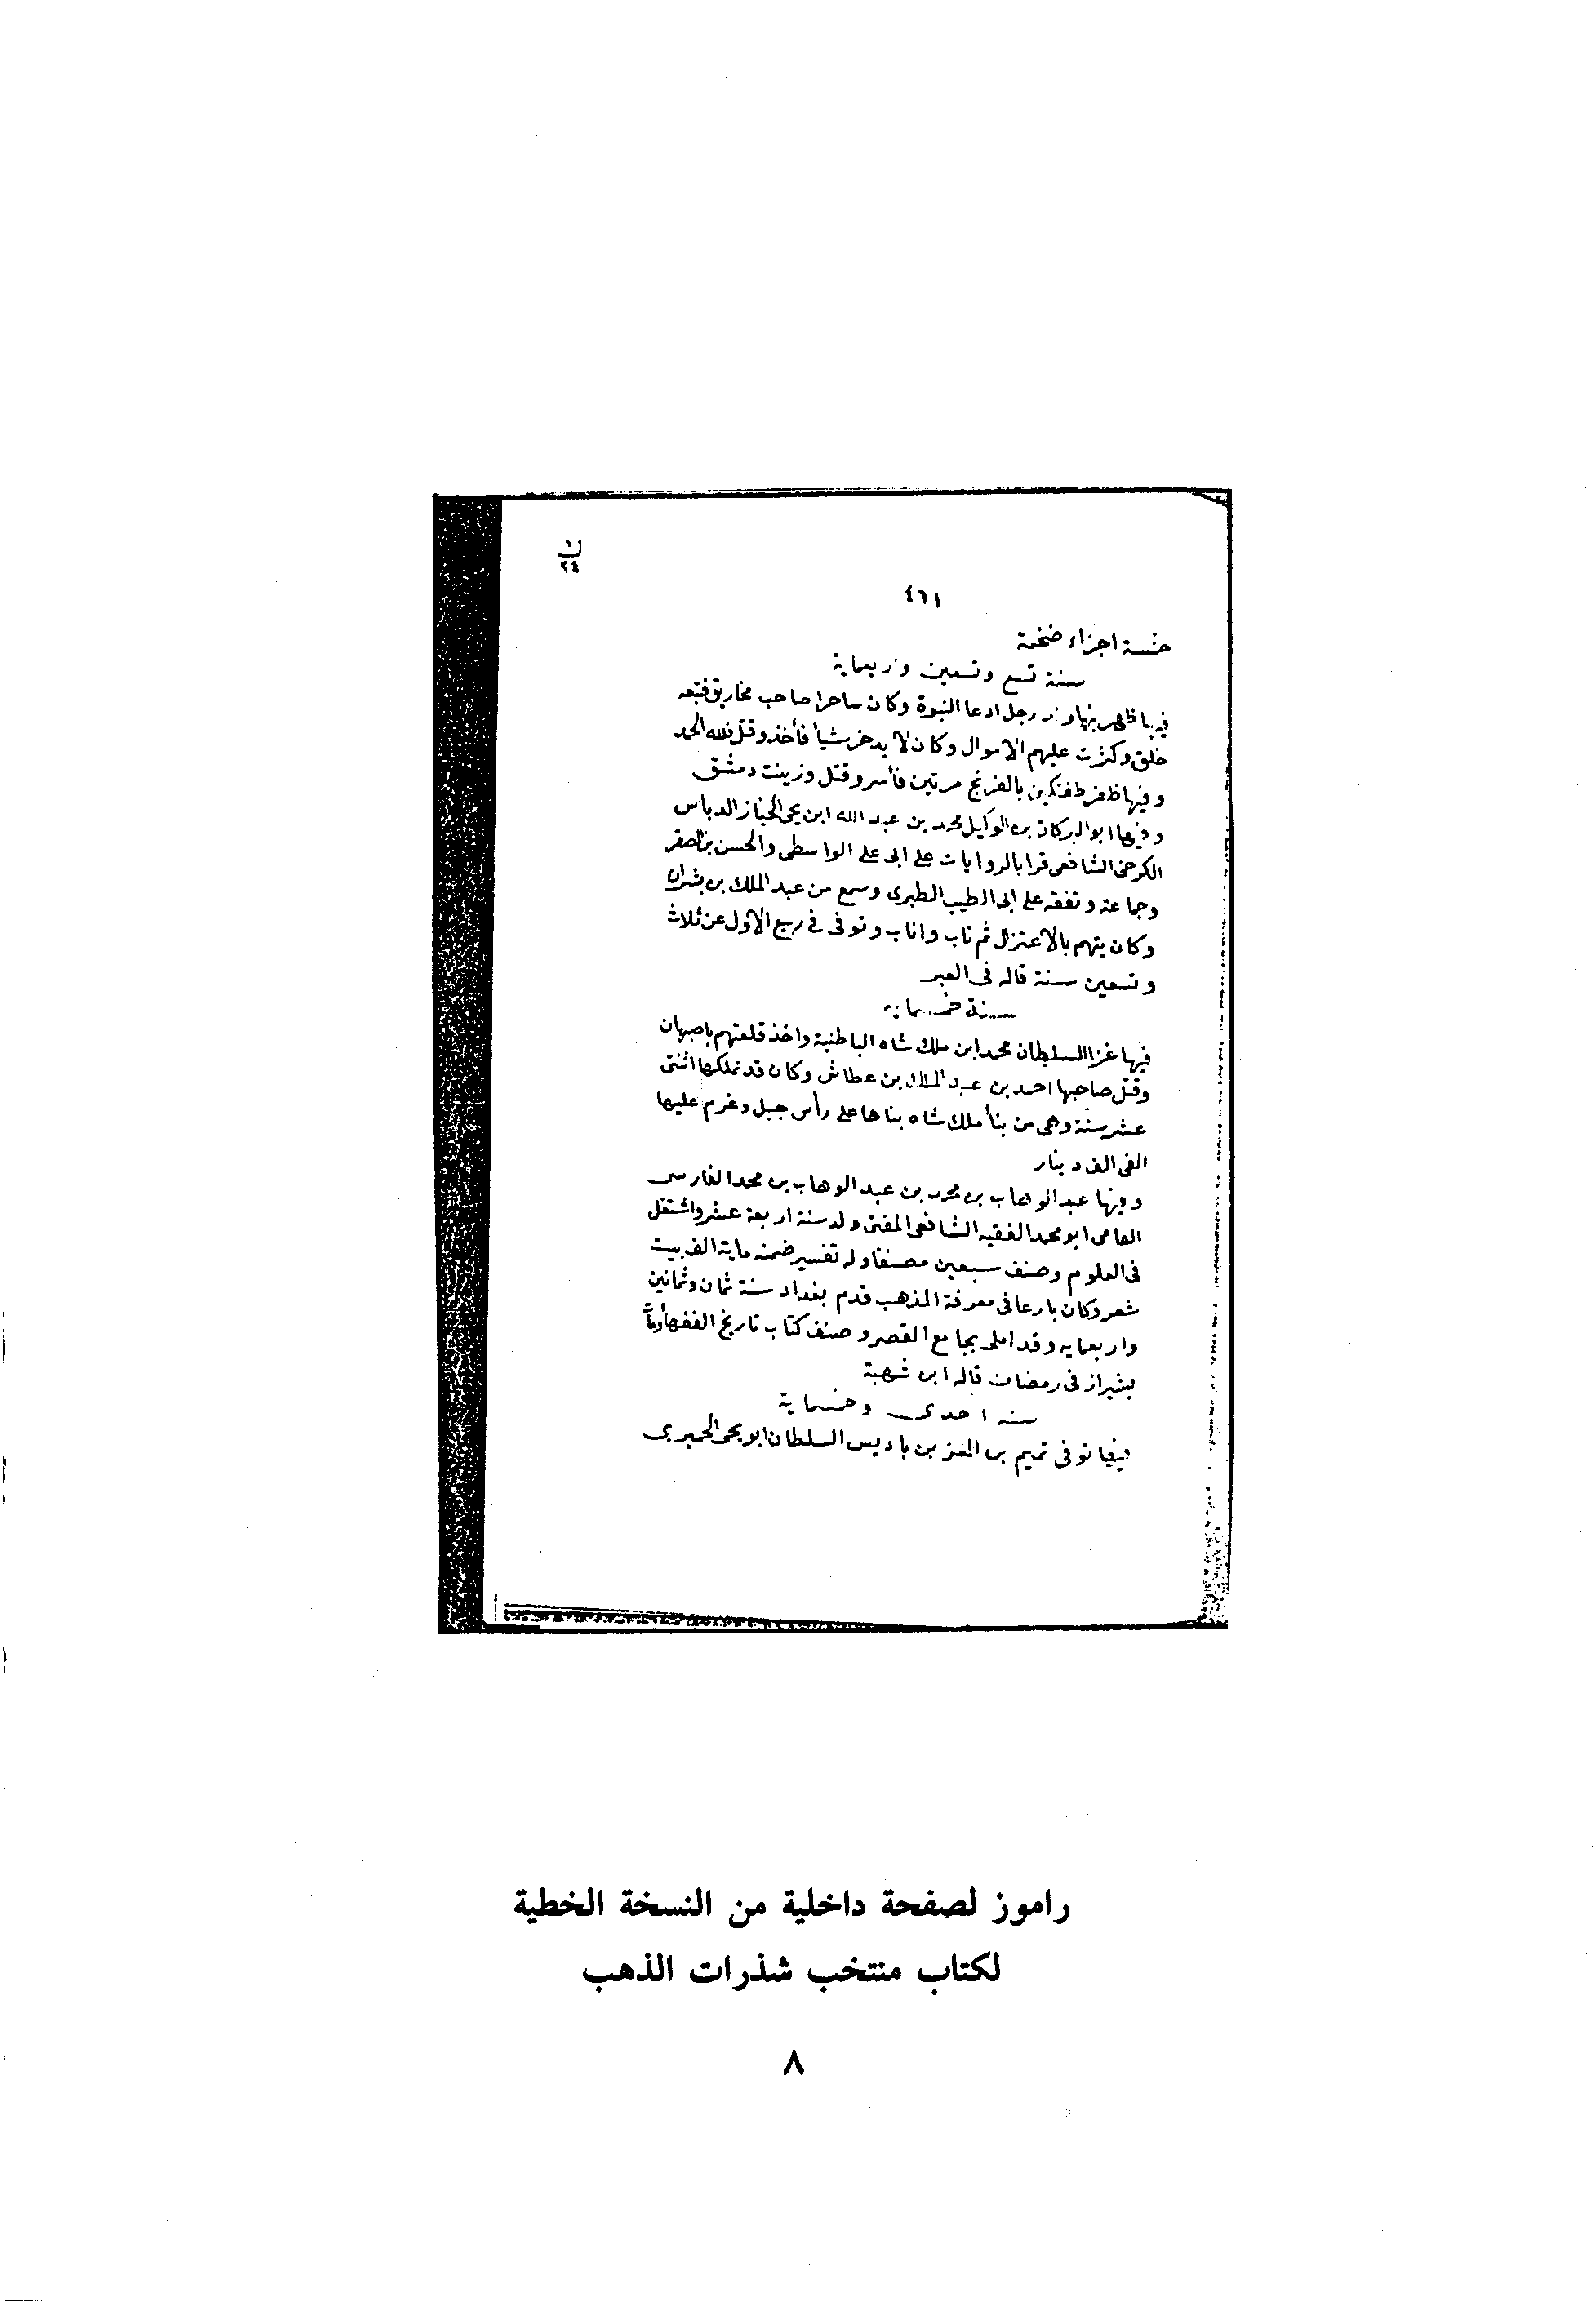 ٤٦١
خمسة اجزاء ضخمة
سنة تسع وتسعين واربعماية
فيها ظهر بنهاوند رجل ادعا النبوة وكان ساحرا صاحب مخاريق فتبعه
خلق وكثرت عليهم الاموال وكان لا يدخر شيأ فأخذ وقتل فلله الحمد
وفيها ظفر طغتكين بالفرنج مرتين فأسر وقتل وزينت دمشق
وفيها ابو البركات بن الوكيل محمد بن عبد الله ابن يحى الخباز الدباس
الكرخى الشافعى قرا بالروايات على ابى على الواسطى والحسن بن الصقر
وجماعة وتفقه على ابى الطيب الطبرى وسمع من عبد الملك بن بشران
وكان يتهم بالاعتزال ثم تاب واناب وتوفى فى ربيع الاول عن ثلاث
وتسعين سنة قاله فى العبر
سنة خمسماية
فيها غزا السلطان محمد ابن ملك شاه الباطنية واخذ قلعتهم باصبهان
وقتل صاحبها احمد بن عبد الملك بن عطاش وكان قد تملكها اثنتى
عشر سنة وهى من بنأ ملك شاه بناها على رأس جبل وغرم عليها
الفى الف دينار
وفيها عبد الوهاب بن محمد بن عبد الوهاب بن محمد الفارسى
الفامى ابو محمد الفقيه الشافعى المفتى ولد سنة اربعة عشر واشتغل
فى العلوم وصنف سبعين مصنفا وله تفسير ضمنه ماية الف بيت
شعر وكان بارعا فى معرفة المذهب قدم بغداد سنة ثمان وثمانين
واربعمايه وقد املى بجامع القصر وصنف كتاب تاريخ الفقهأ
بشيراز فى رمضان قاله ابن شهبة
سنه احدى وخمسماية
فيها توفى تميم بن المعز بن باديس السلطان ابو يحى الحميرى
راموز لصفحة داخلية من النسخة الخطية
لكتاب منتخب شذرات الذهب
٨